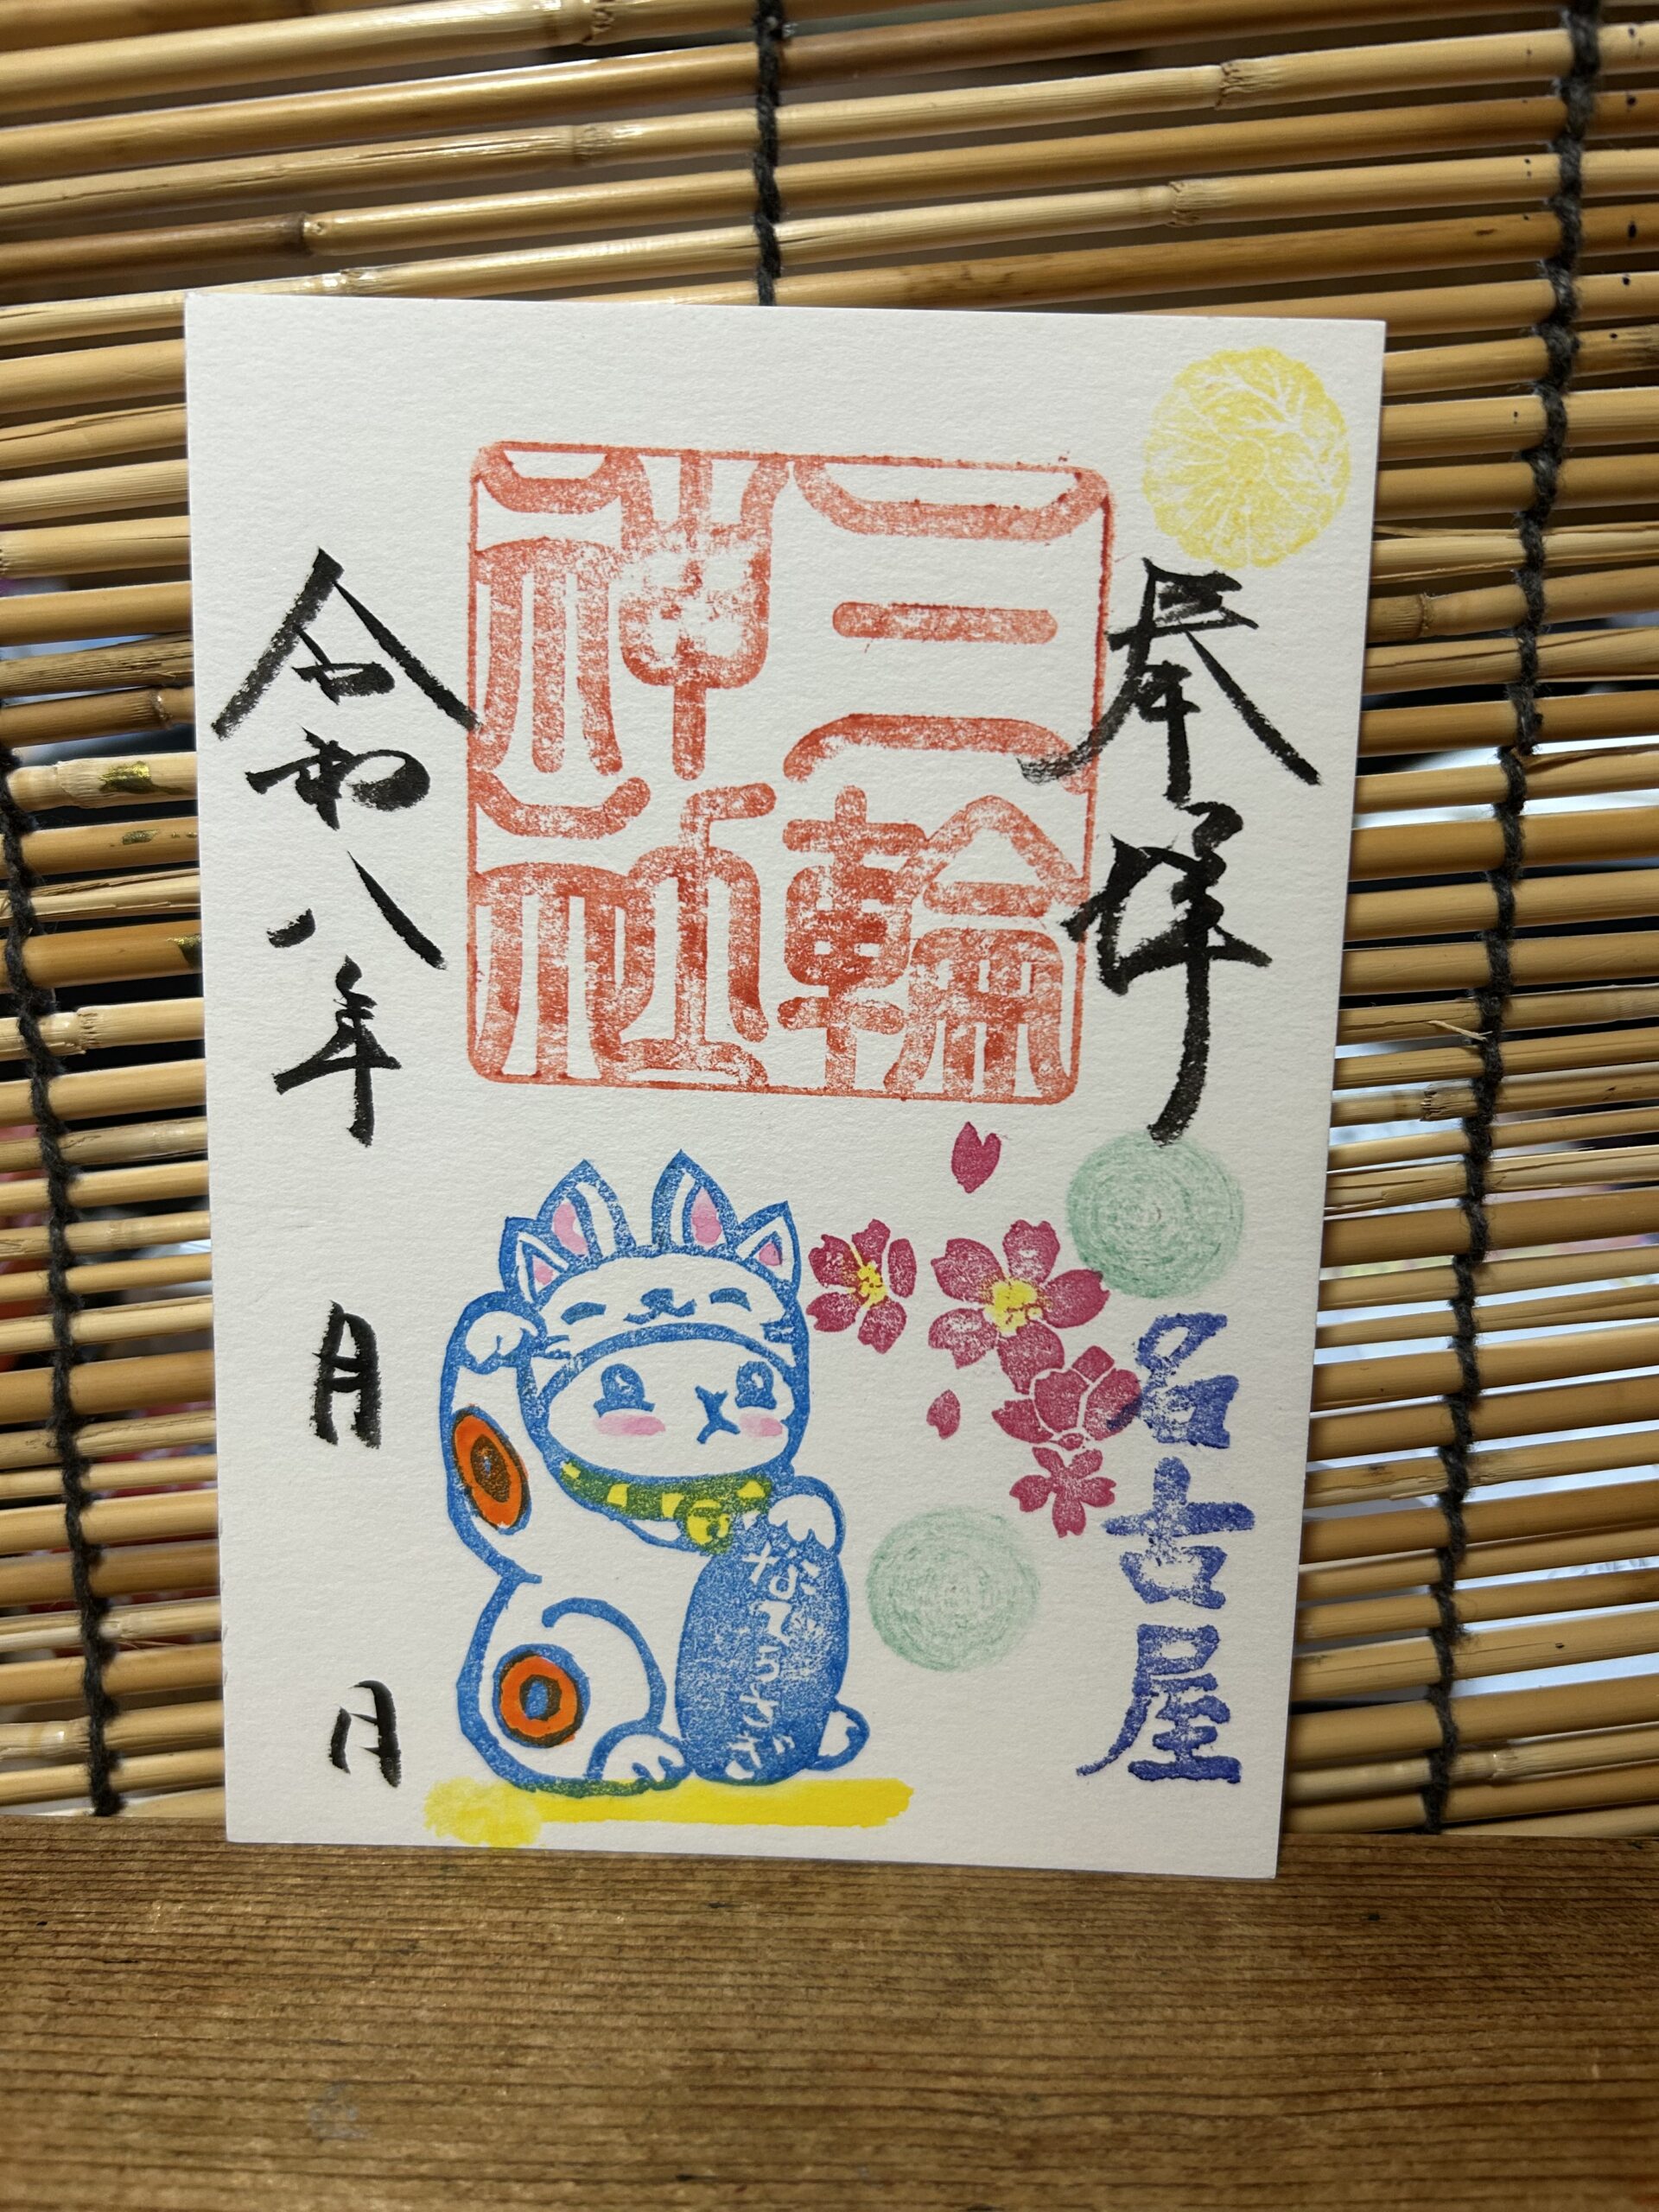 奉拝
名古屋
三輪
神社
なでうさぎ
令和八年 月 日